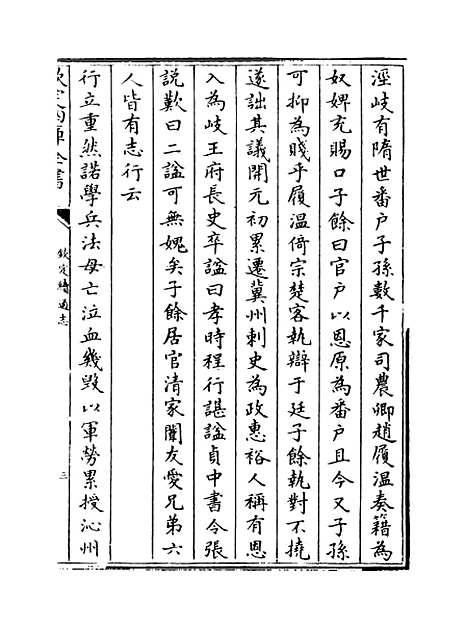 涇岐有隋世番戶子孫數千家司農卿趙履溫奏籍為
奴婢充賜口子餘曰官戶以恩原為番戶且今又子孫
可抑為賤乎履溫倚宗楚客執辯于廷子餘執對不撓
遂詘其議開元初累遷冀州刺史為政惠裕人稱有恩
入為岐王府長史卒諡曰孝時程行諶諡貞中書令張
說歎曰二諡可無媿矣子餘居官清家闔友愛兄弟六
人皆有志行云
行立重然諾學兵法母亡泣血幾毀以軍勞累授沁州
欽定四庫全書
欽定續通志
三